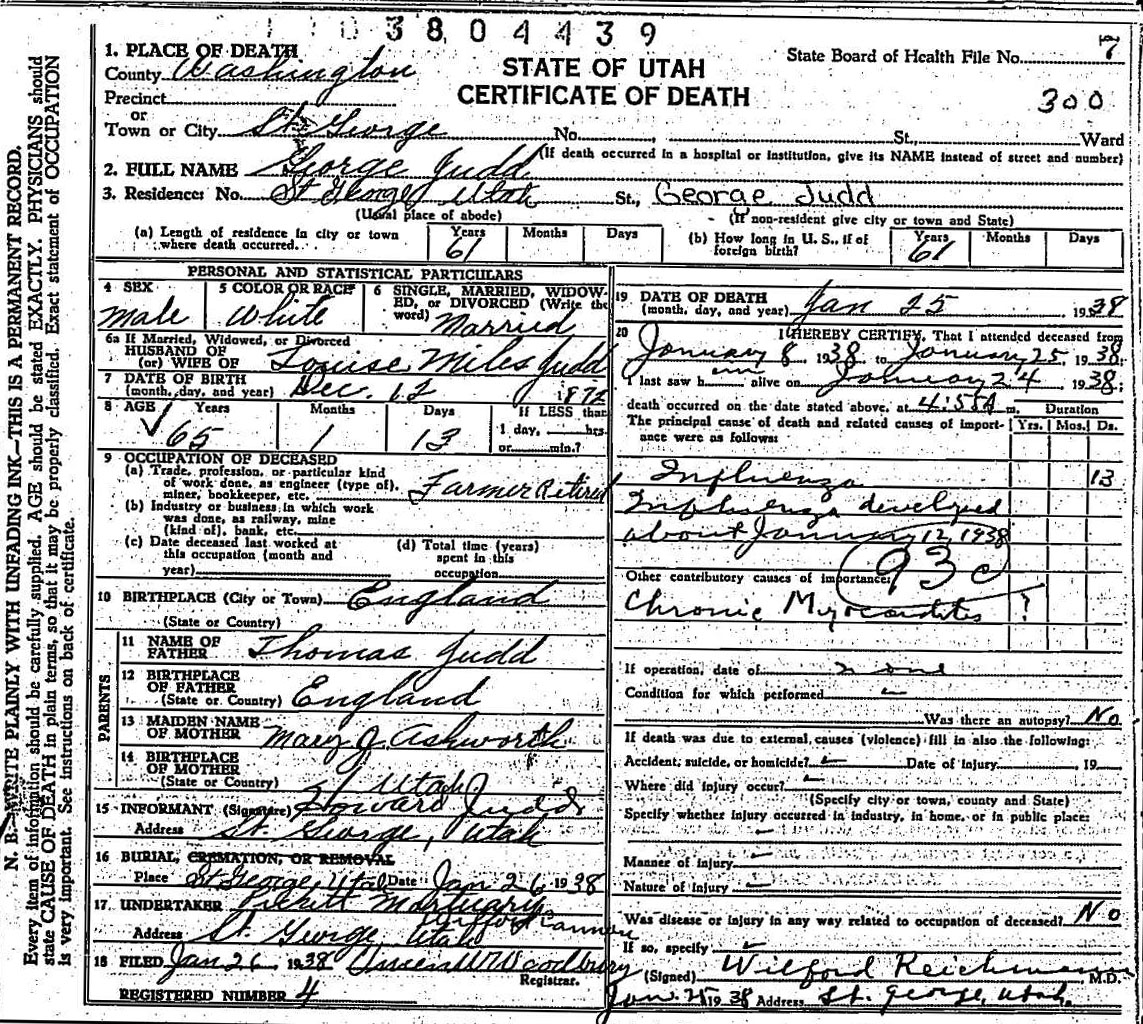 1 1 0 3 8 0 4 4 3 9
N. B.—WRITE PLAINLY WITH UNFADING INK—THIS IS A PERMANENT RECORD.
Every item of information should be carefully supplied. AGE should be stated EXACTLY. PHYSICIANS should
state CAUSE OF DEATH in plain terms, so that it may be properly classified. Exact statement of OCCUPATION
is very important. See instructions on back of certificate.
STATE OF UTAH
CERTIFICATE OF DEATH
State Board of Health File No. 7
300
1. PLACE OF DEATH
County Washington
Precinct
or
Town or City St. George No. St., Ward
(If death occurred in a hospital or institution, give its NAME instead of street and number)
2. FULL NAME George Judd
3. Residence: No. St George Utah St., George Judd
(Usual place of abode) (If non-resident give city or town and State)
(a) Length of residence in city or town where death occurred. Years 61 Months Days
(b) How long in U. S., if of foreign birth? Years 61 Months Days
PERSONAL AND STATISTICAL PARTICULARS
4 SEX male
5 COLOR OR RACE White
6 SINGLE, MARRIED, WIDOWED, or DIVORCED (Write the word) Married
6a If Married, Widowed, or Divorced
HUSBAND OF
(or) WIFE OF Louise Miles Judd
7 DATE OF BIRTH
(month, day, and year) Dec. 12 1872
8 AGE Years 65 Months 1 Days 13 If LESS than 1 day, hrs. or min.?
9 OCCUPATION OF DECEASED
(a) Trade, profession, or particular kind
of work done, as engineer (type of),
miner, bookkeeper, etc. Farmer Retired
(b) Industry or business in which work
was done, as railway, mine
(kind of), bank, etc.
(c) Date deceased last worked at
this occupation (month and
year)
(d) Total time (years)
spent in this
occupation
10 BIRTHPLACE (City or Town) England
(State or Country)
PARENTS
11 NAME OF
FATHER Thomas Judd
12 BIRTHPLACE
OF FATHER
(State or Country) England
13 MAIDEN NAME
OF MOTHER Mary J. Ashworth
14 BIRTHPLACE
OF MOTHER
(State or Country) Utah
15 INFORMANT (Signature) Howard Judd
Address St. George, Utah
16 BURIAL, CREMATION, OR REMOVAL
Place St George, Utah Date Jan 26 1938
17 UNDERTAKER Pickett Mortuary
Address St George, Utah
18 FILED Jan 26 1938 Woodbury
Registrar.
REGISTERED NUMBER 4
19 DATE OF DEATH
(month, day, and year) Jan 25 1938
20 I HEREBY CERTIFY, That I attended deceased from
January 8 1938 to January 25, 1938;
I last saw him alive on January 24 1938;
death occurred on the date stated above, at 4:55A m.
Duration
Yrs. Mos. Ds.
The principal cause of death and related causes of importance were as follows:
Influenza 13
Influenza developed
about January 12, 1938
93c
Other contributory causes of importance:
Chronic Myocarditis ?
If operation, date of none
Condition for which performed
Was there an autopsy? No
If death was due to external causes (violence) fill in also the following:
Accident, suicide, or homicide? Date of Injury 19
Where did injury occur?
(Specify city or town, county and State)
Specify whether injury occurred in industry, in home, or in public place:
Manner of injury
Nature of Injury
Was disease or injury in any way related to occupation of deceased? No
If so, specify
(Signed) Wilford Reichmann M.D.
Jan. 25 1938 Address St. George, Utah.